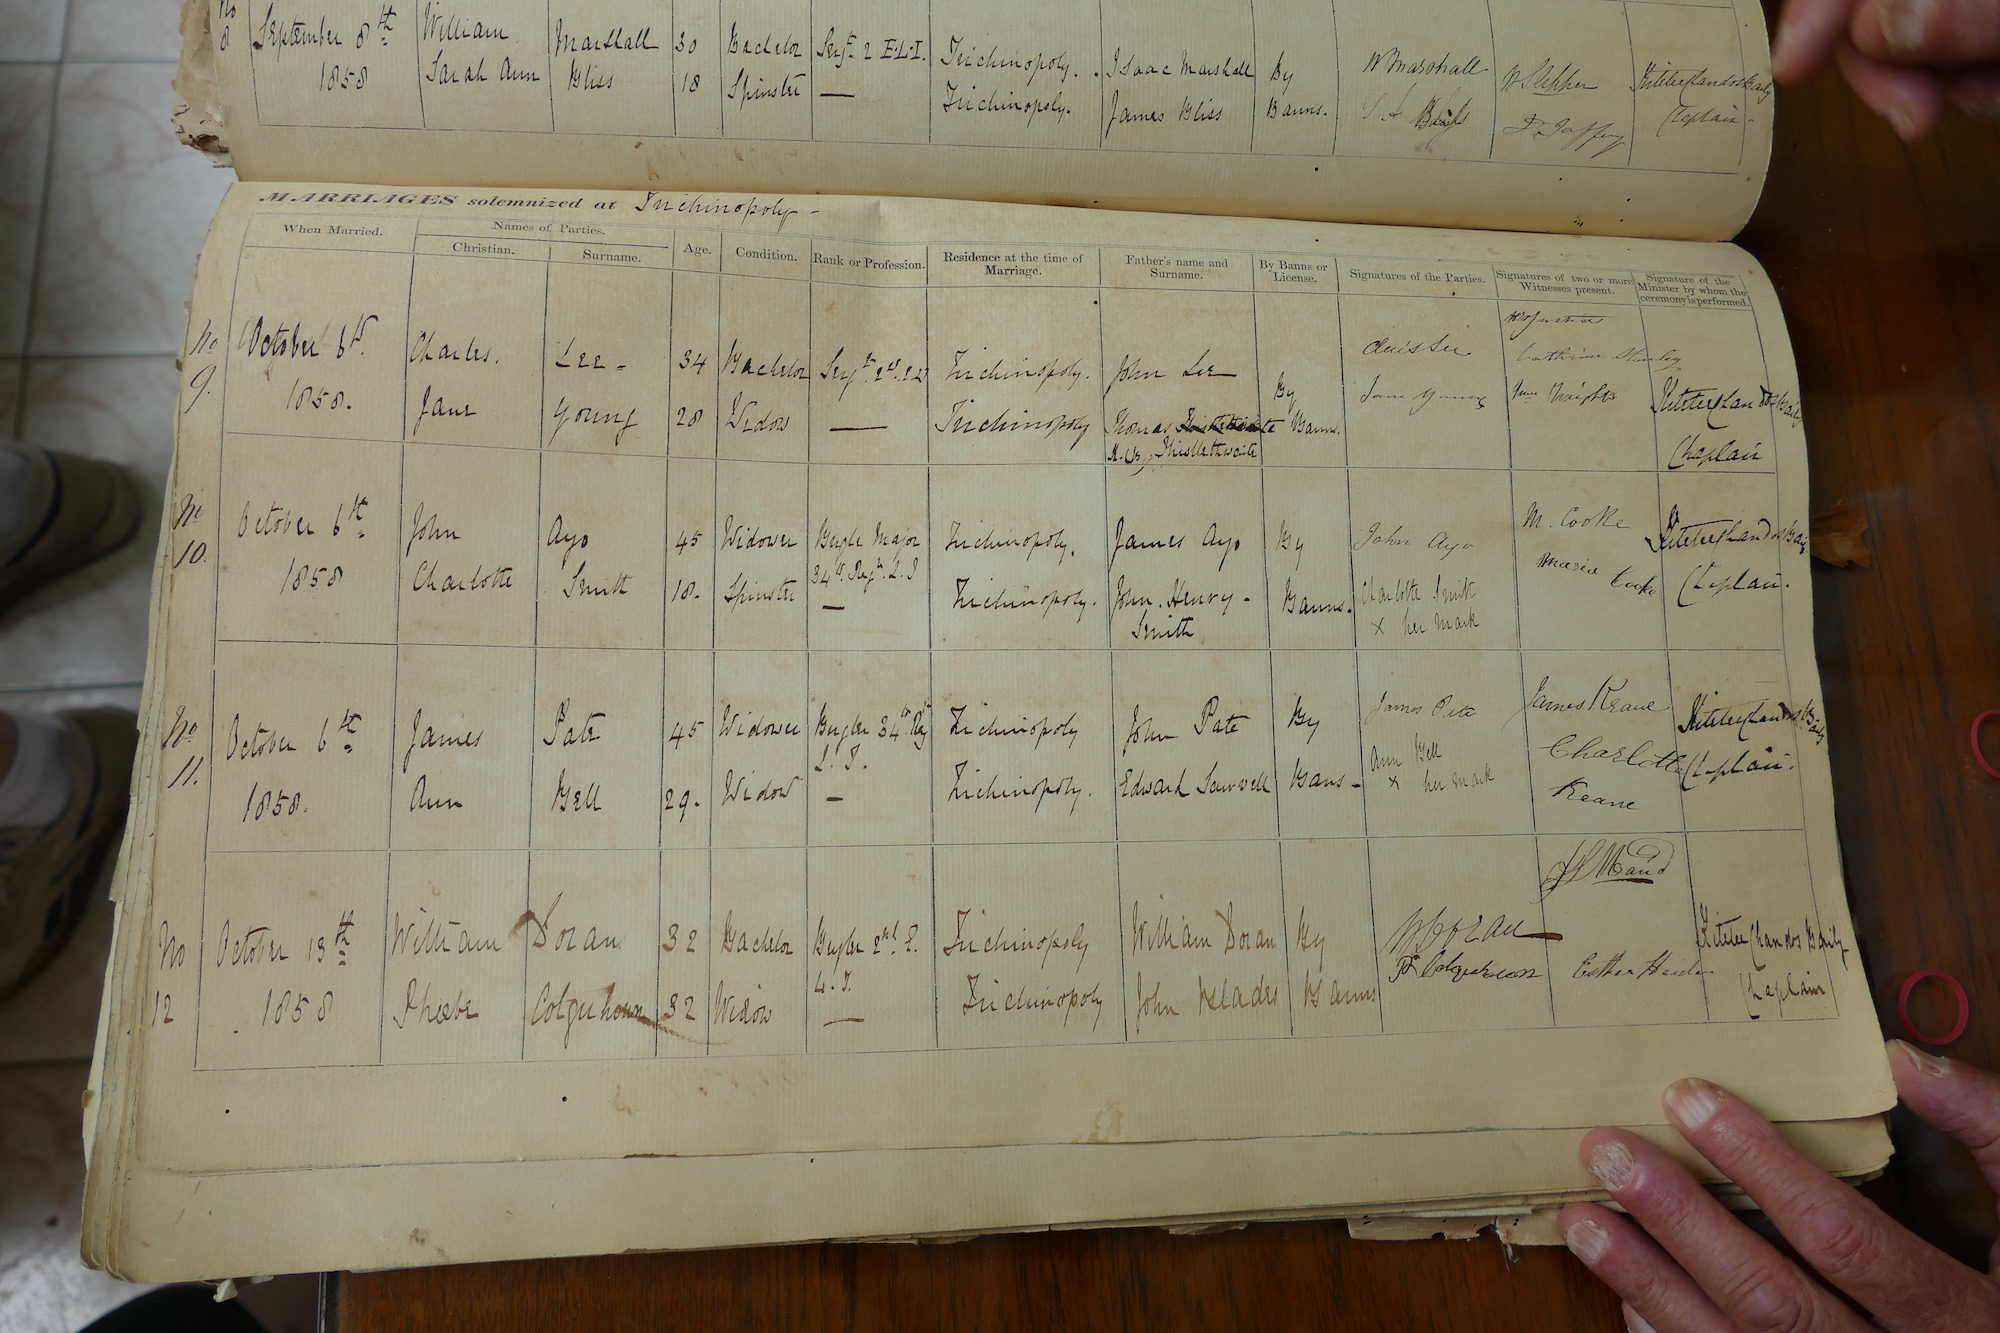 No 8 September 8th William Marshall 30 Bachelor Sergt 2 E.L.I. Trichinopoly. Isaac Marshall By W Marshall Chaplain
1858 Sarah Ann Bliss 18 Spinster — Trichinopoly. James Bliss Banns. S A Bliss
MARRIAGES solemnized at Trichinopoly -
When Married. Names of Parties. Age. Condition. Rank or Profession. Residence at the time of Marriage. Father's name and Surname. By Banns or License. Signatures of the Parties. Signatures of two or more Witnesses present. Signature of the Minister by whom the ceremony is performed.
Christian. Surname.
No 9. October 6th. Charles. Lee - 34 Bachelor Trichinopoly. John Lee By
1858. Jane Young 28 Widow — Trichinopoly Thomas Banns. Jane Young Wm Wrights Chaplain
Thistlethwaite
No 10. October 6th John Ayo 45 Widower Bugle Major Trichinopoly. James Ayo By John Ayo M. Cooke
34th Regt. L.I
1858 Charlotte Smith 18. Spinster — Trichinopoly. John. Henry - Smith Banns. Charlotte Smith Maria Cooke Chaplain.
x her mark
No 11. October 6th James Pate 45 Widower Bugler 34th Regt L.I. Trichinopoly John Pate By James Pate James Keane
1858. Ann Bell 29. Widow — Trichinopoly. Edward Banns - Ann Bell Charlotte Keane Chaplain.
x her mark
No 12 October 13th William Doran 32 Bachelor Bugler 2nd E. L.I. Trichinopoly William Doran By W Doran
1858 Phoebe Colquhoun 32 Widow — Trichinopoly John Blades Banns P Colquhoun Esther Chaplain